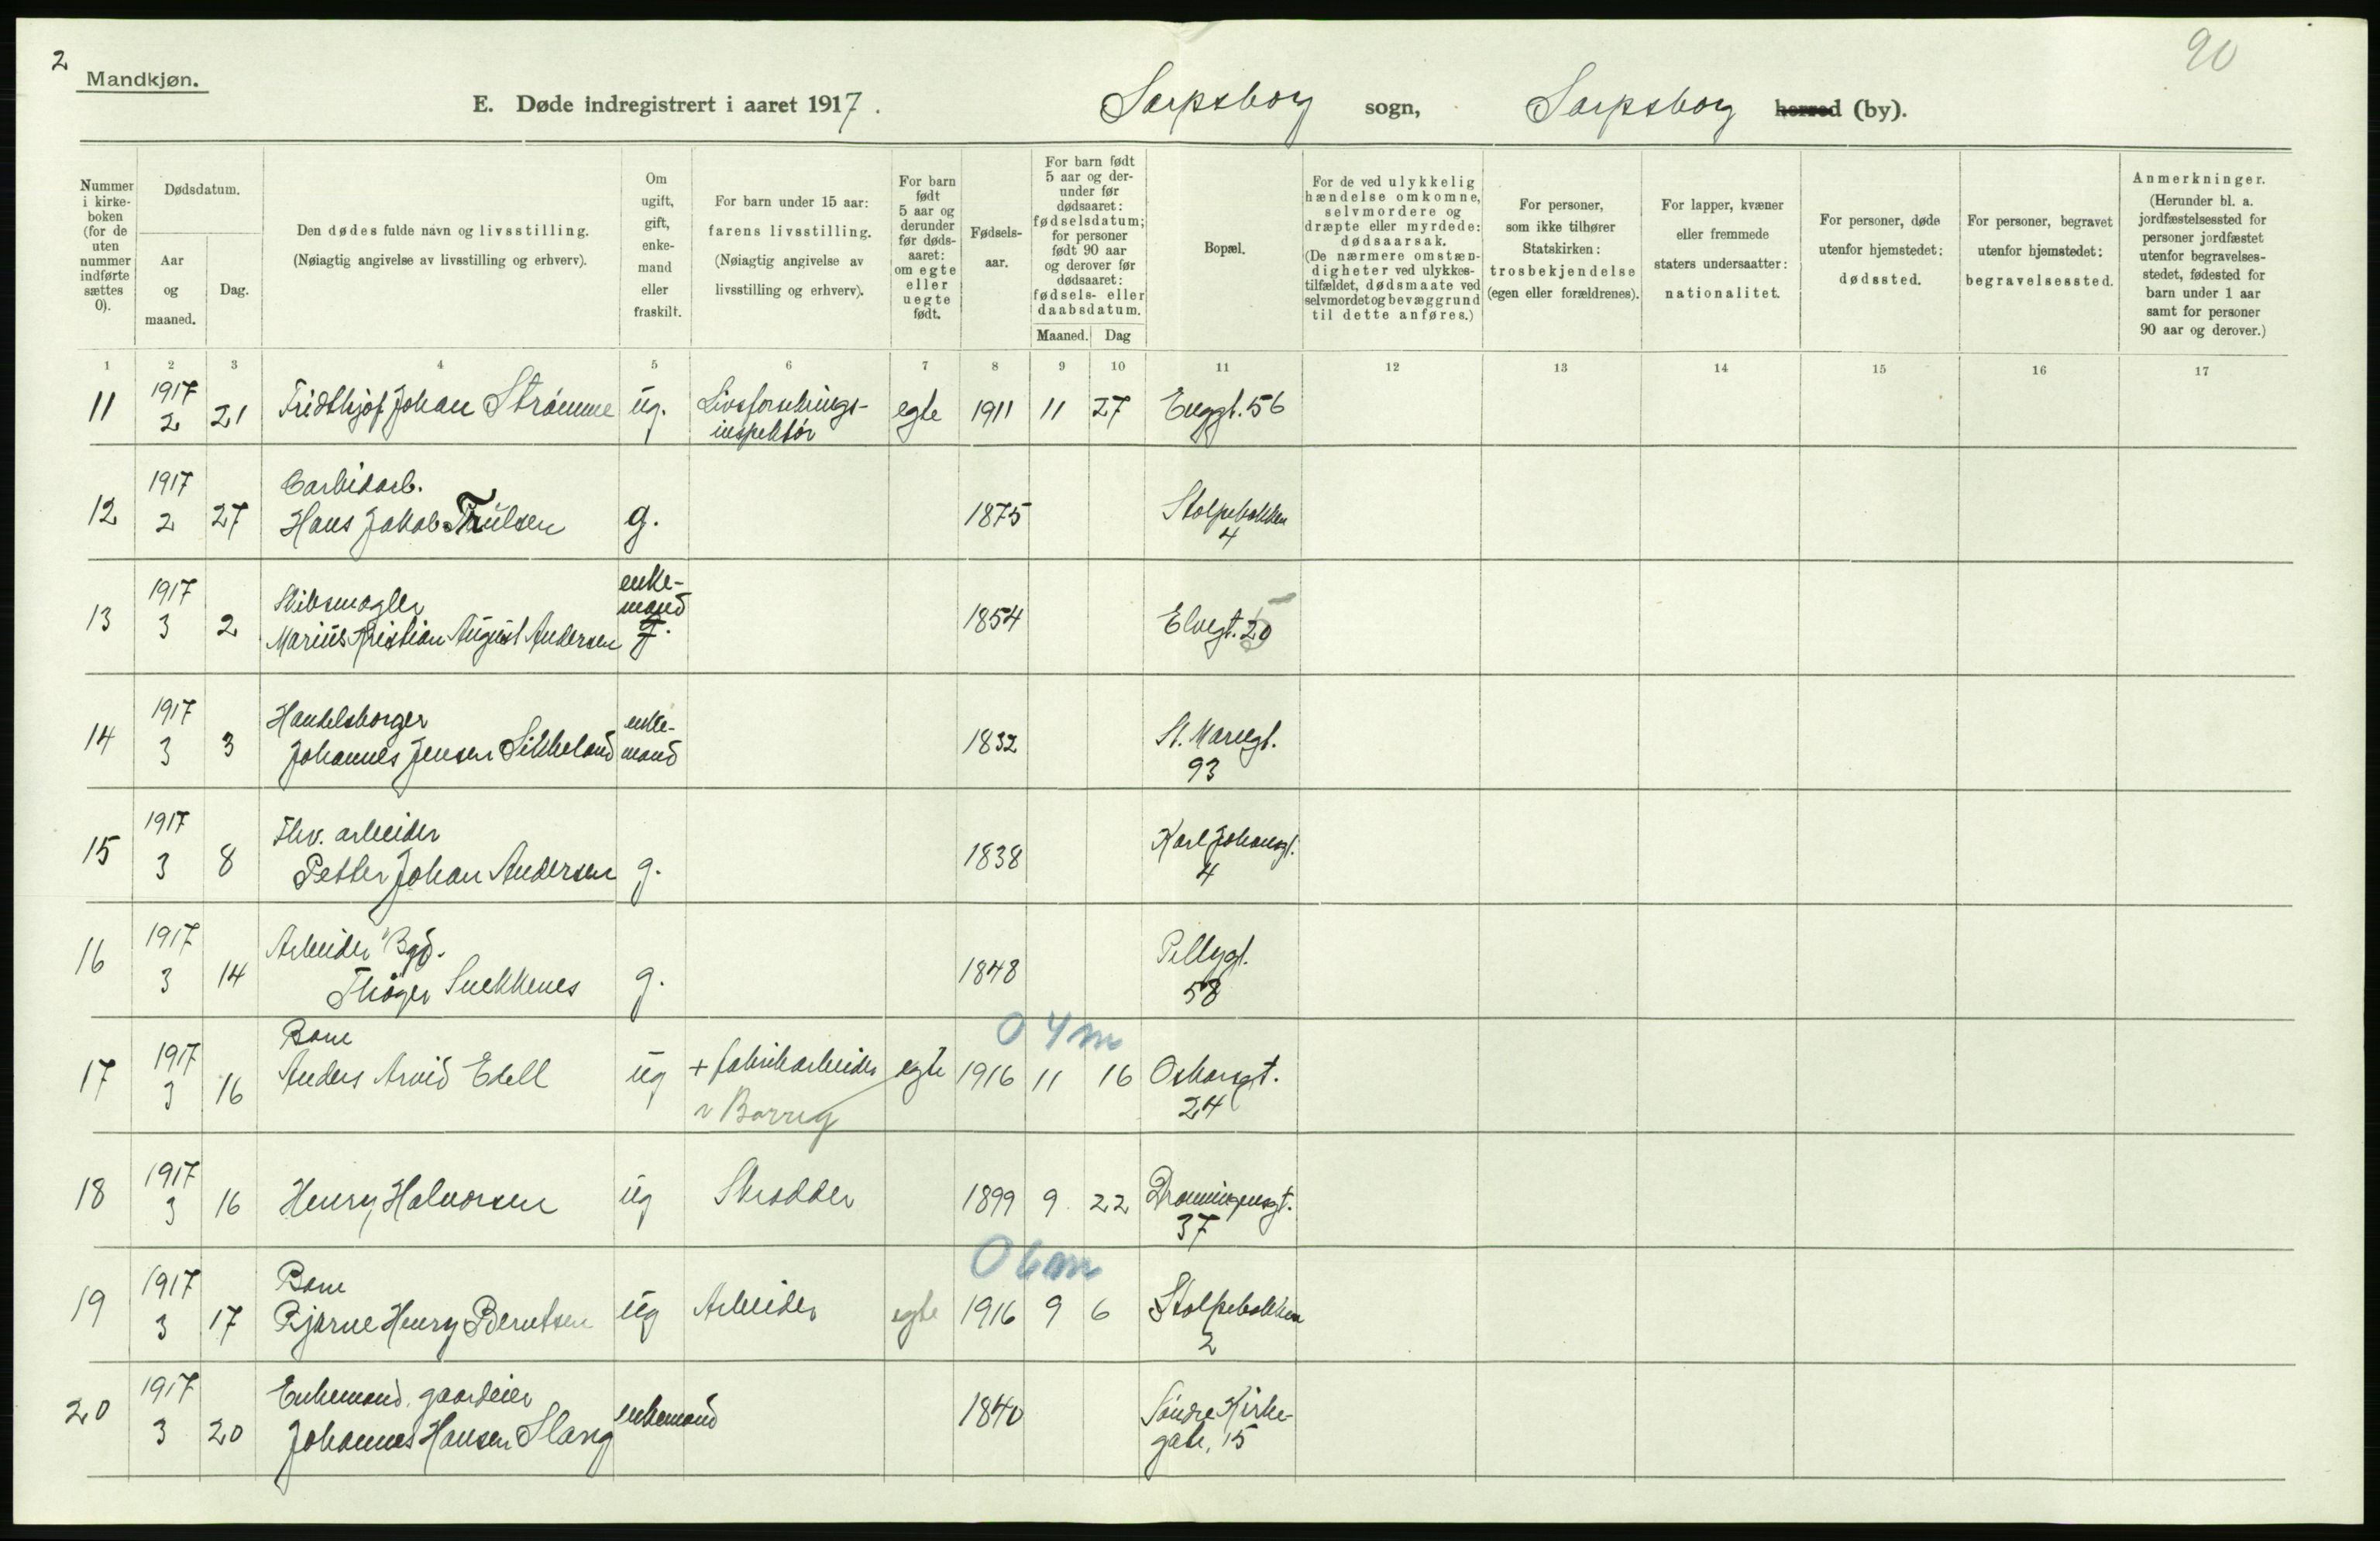 2
90
Mandkjøn.
E. Døde indregistrert i aaret 1917.
Sarpsborg sogn, Sarpsborg herred (by).
Nummer i kirke-boken (for de uten nummer indførte sættes 0).
Dødsdatum.
Aar og maaned.
Dag.
Den dødes fulde navn og livsstilling.
(Nøiagtig angivelse av livsstilling og erhverv).
Om ugift, gift, enke-mand eller fraskilt.
For barn under 15 aar: farens livsstilling.
(Nøiagtig angivelse av livsstilling og erhverv).
For barn født 5 aar og derunder før døds-aaret: om egte eller uegte født.
Fødsels-aar.
For barn født 5 aar og der-under før dødsaaret: fødselsdatum; for personer født 90 aar og derover før dødsaaret: fødsels- eller daabsdatum.
Maaned. Dag
Bopæl.
For de ved ulykkelig hændelse omkomne, selvmordere og dræpte eller myrdede: dødsaarsak.
(De nærmere omstæn-digheter ved ulykkes-tilfældet, dødsmaate ved selvmordet og bevæggrund til dette anføres.)
For personer, som ikke tilhører Statskirken: trosbekjendelse (egen eller forældrenes).
For lapper, kvæner eller fremmede staters undersaatter: nationalitet.
For personer, døde utenfor hjemstedet: dødssted.
For personer, begravet utenfor hjemstedet: begravelsessted.
Anmerkninger.
(Herunder bl. a. jordfæstelsessted for personer jordfæstet utenfor begravelses-stedet, fødested for barn under 1 aar samt for personer 90 aar og derover.)
1 2 3 4 5 6 7 8 9 10 11 12 13 14 15 16 17
11 1917 2 21 Fridthjof Johan Strømme ug. Livsforsikrings-inspektør egte 1911 11 27 Enggt. 56
12 1917 2 27 Carbidarb. Hans Jakob Trulsen g. 1875 Stolpebakken 4
13 1917 3 2 Skibsmægler Marius Kristian August Andersen enke-mand 1854 Elvegt. 20
14 1917 3 3 Handelsborger Johannes Jensen Sikkeland enke-mand 1832 St. Mariegt. 93
15 1917 3 8 Fhv. arbeider Petter Johan Andersen g. 1838 Karl Johansgt. 4
16 1917 3 14 Arbeider Bgd. Thøger Snekkenes g. 1848 Pellygt. 58
0 4 m
17 1917 3 16 Barn Anders Arvid Edell ug + fabrikarbeider v Borreg egte 1916 11 16 Oskarsgt. 24
18 1917 3 16 Henry Halvorsen ug Skrædder 1899 9 22 Dronningensgt. 37
0 6 m
19 1917 3 17 Barn Bjarne Henry Berntsen ug Arbeider egte 1916 9 6 Stolpebakken 2
20 1917 3 20 Enkemand, gaardeier Johannes Hansen Slang enkemand 1840 Søndre Kirke-gate, 15